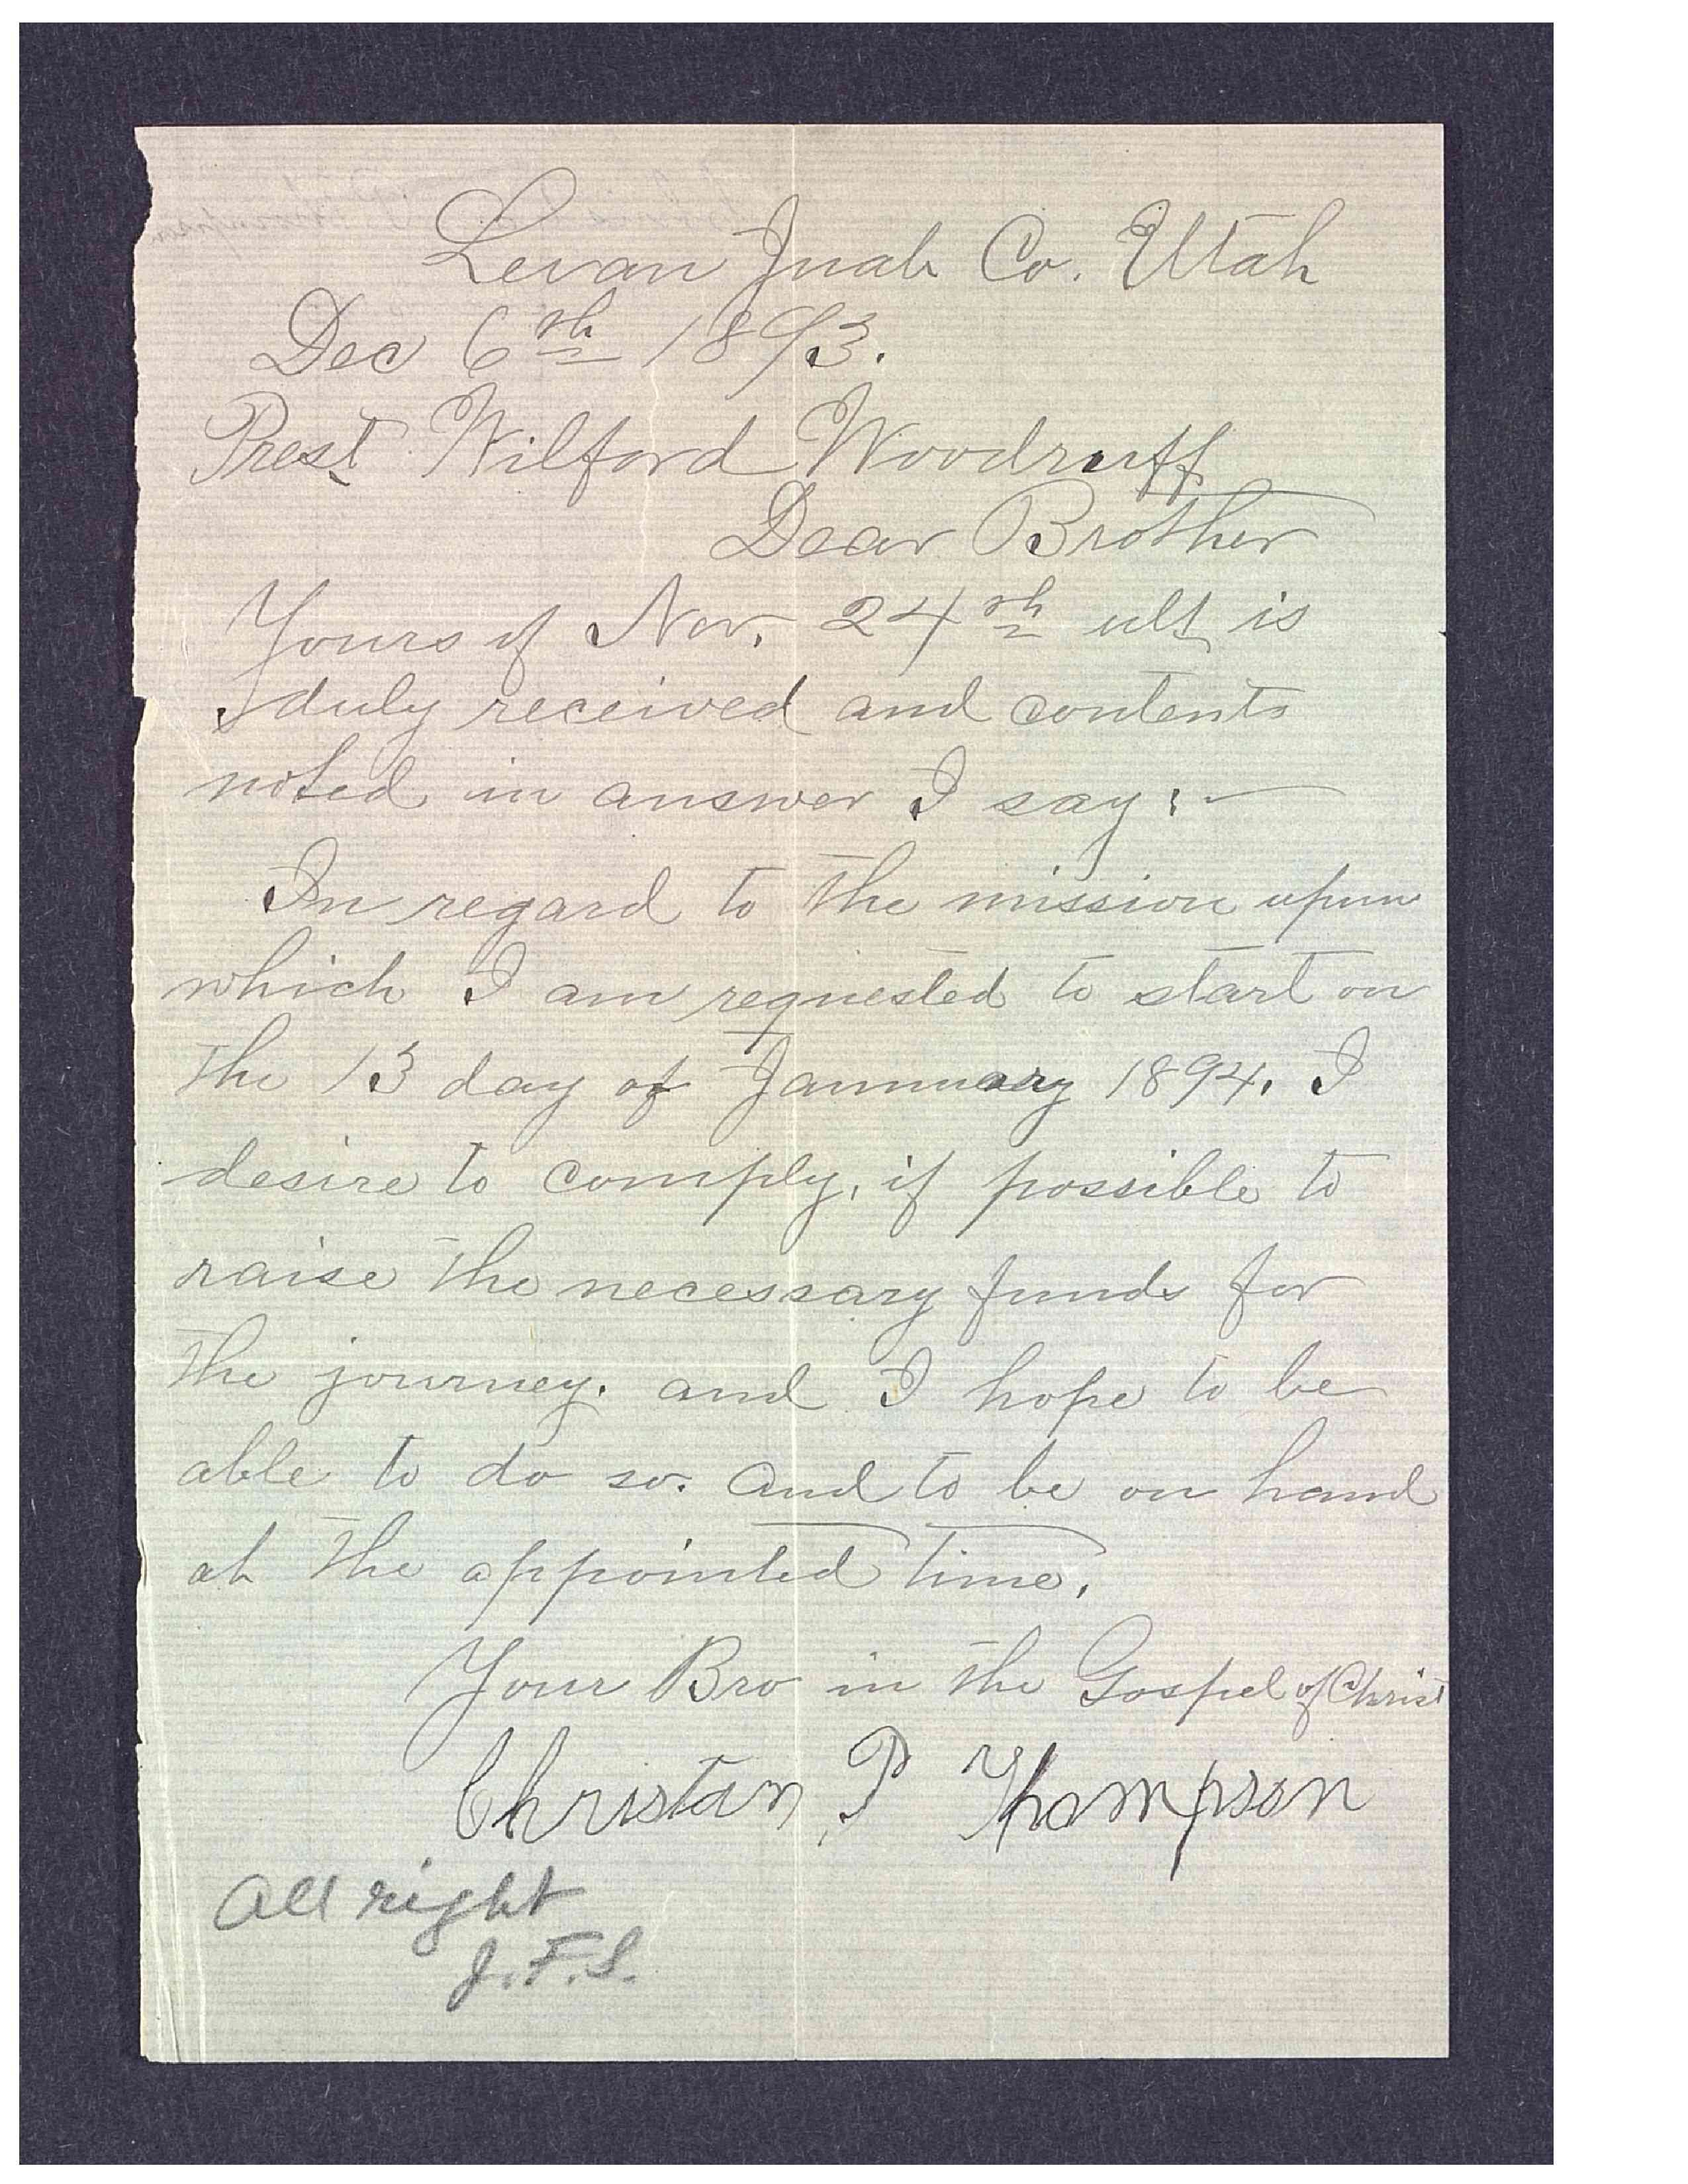 Levan Juab Co. Utah
Dec 6th 1893.
Prest Wilford Woodruff
Dear Brother
Yours of Nov. 24th ult is
duly received and contents
noted in answer I say:—
In regard to the mission upon
which I am requested to start on
the 13 day of Jannuary 1894. I
desire to comply, if possible to
raise the necessary funds for
the journey. and I hope to be
able to do so. and to be on hand
at the appointed time.
Your Bro in the Gospel of Christ
Christan P Thompson
All right
J.F.S.